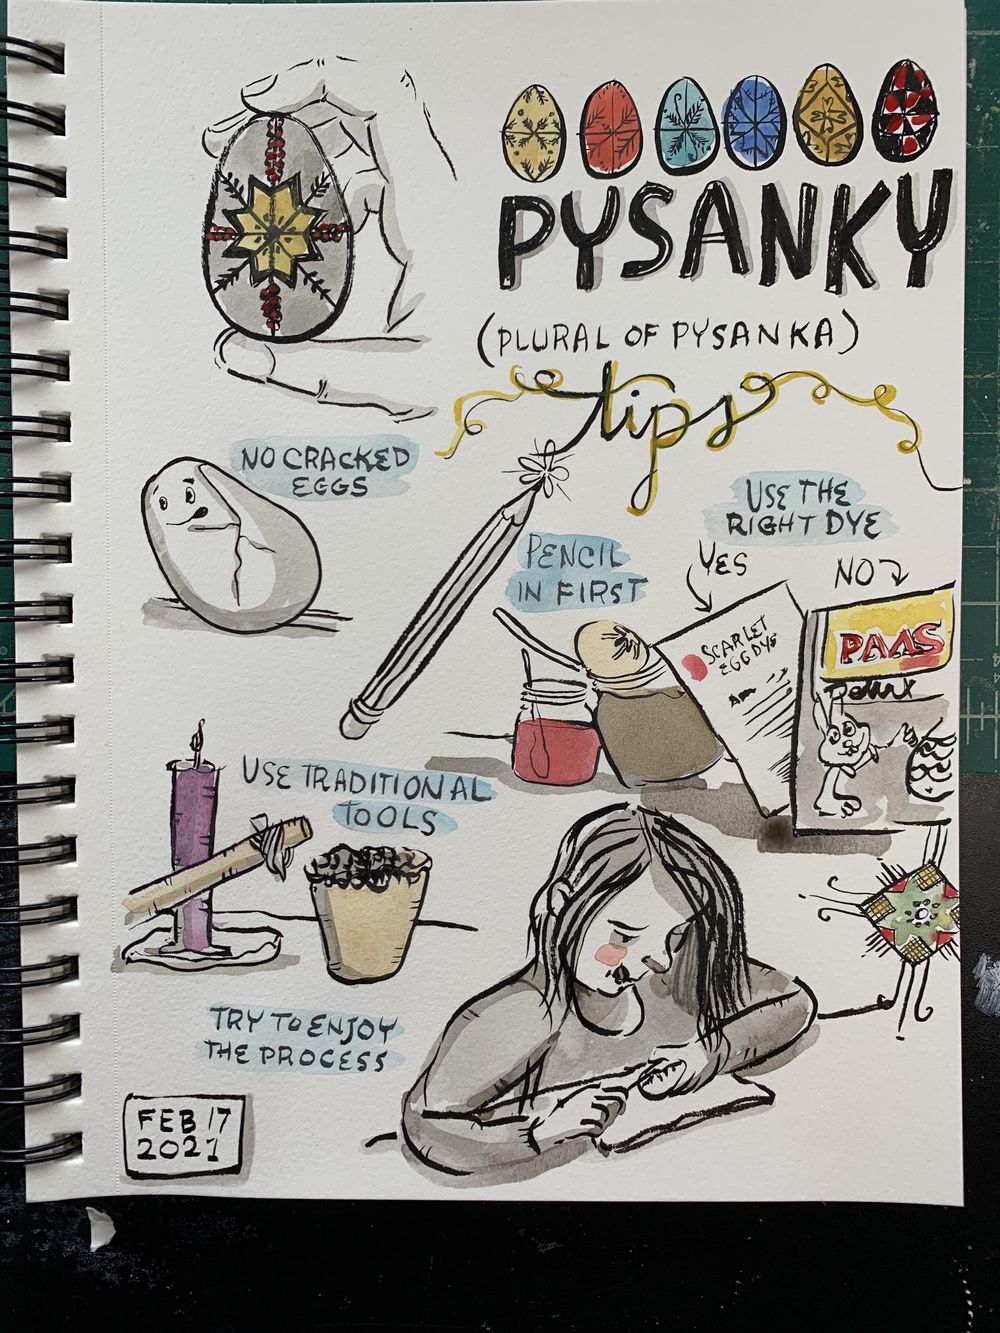 PYSANKY
(PLURAL OF PYSANKA)
tips
NO CRACKED
EGGS
PENCIL
IN FIRST
USE THE
RIGHT DYE
YES
NO
SCARLET
EGG DYE
PAAS
Delux
USE TRADITIONAL
TOOLS
TRY TO ENJOY
THE PROCESS
FEB 17
2021